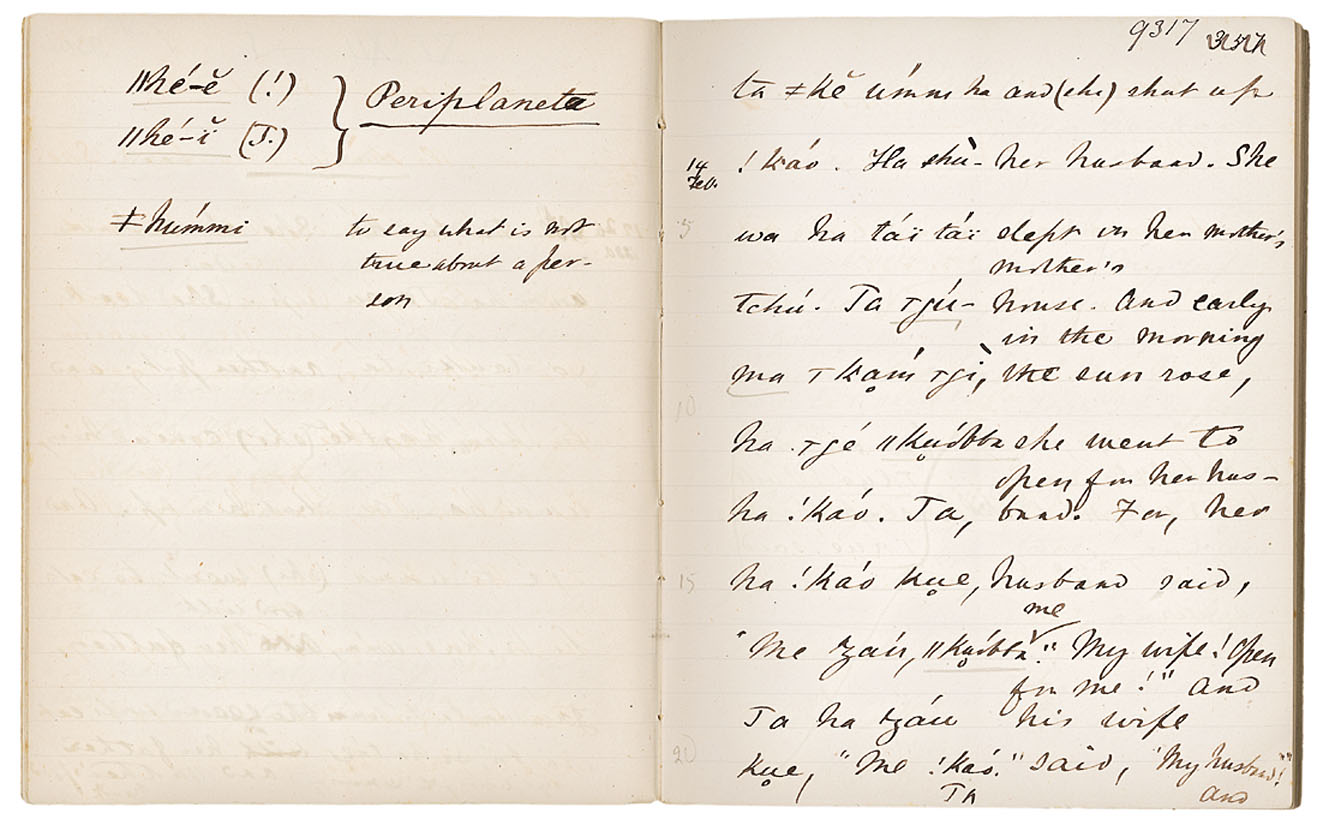 ǁhé-ĕ (!)
ǁhé-ĭ (T.)
Periplaneta
ǂhúmmi to say what is not
true about a per-
son
9317
ta ǂkĕ úmm ha and (she) shut up
14 Feb. !káo. Ha shù- her husband. She
5 wa ha táï táï slept in her mother's
mother's
tchú. Ta ⊤gú- house. And early
in the morning
ma ⊤kạḿ ⊤gì, the sun rose,
10
ha ⊤gé ǁkụóbba she went to
open for her hus-
ha !káo. Ta, band. For, her
15 ha !káo kụe, husband said,
me
"Me zaú, ǁkụóbba." My wife! Open
for me!" And
Ta ha zaú his wife
20 kụe, "Me !káo." said, "My husband!"
Ta and